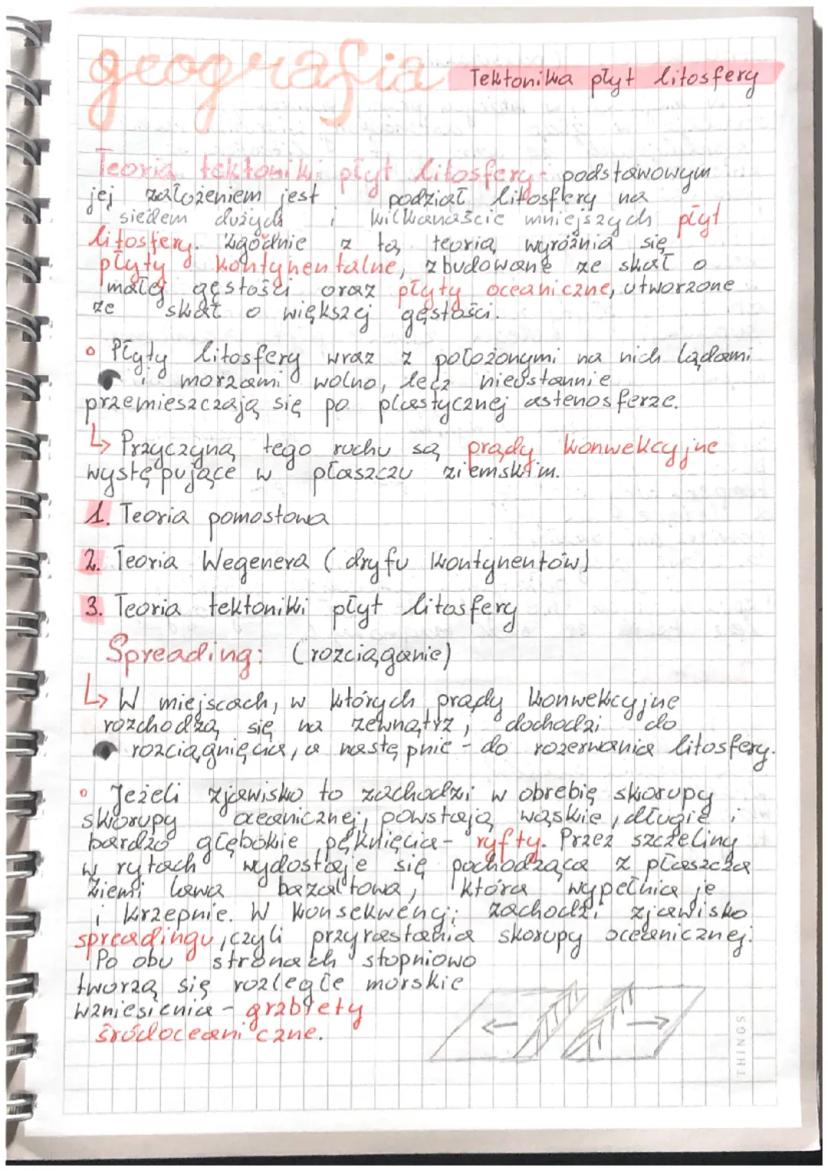 geografia
Tektonika płyt litosfery
Teoria tektoniki płyt litosfery - podstawowym
jej założeniem jest podział litosfery na
siedem dużych i kilkanaście mniejszych płyt
litosfery. Zgodnie z tą teorią wyróżnia się
płyty kontynentalne, zbudowane ze skał o
małej gęstości oraz płyty oceaniczne, utworzone
ze skał o większej gęstości.
Płyty litosfery wraz z położonymi na nich lądami
i morzami wolno, lecz nieustannie
przemieszczają się po plastycznej astenosferze.
↳ Przyczyną tego ruchu są prądy konwekcyjne
występujące w płaszczu ziemskim.
1. Teoria pomostowa
2. Teoria Wegenera (dryfu kontynentów)
3. Teoria tektoniki płyt litosfery
Spreading: (rozciąganie)
↳ W miejscach, w których prądy konwekcyjne
rozchodzą się na zewnątrz, dochodzi do
rozciągnięcia, a następnie - do rozerwania litosfery.
Jeżeli zjawisko to zachodzi w obrębię skorupy
skorupy oceanicznej, powstają wąskie, długie i
bardzo głębokie pęknięcia - ryfty. Przez szczeliny
w rytach wydostaje się pochodząca z płaszcza
Ziemi lawa bazaltowa, która wypełnia je
i krzepnie. W konsekwencji zachodzi zjawisko
spreadingu, czyli przyrastania skorupy oceanicznej.
Po obu stronach stopniowo
tworzą się rozległe morskie
wzniesienia - grzbiety
śródoceaniczne.
THINGS